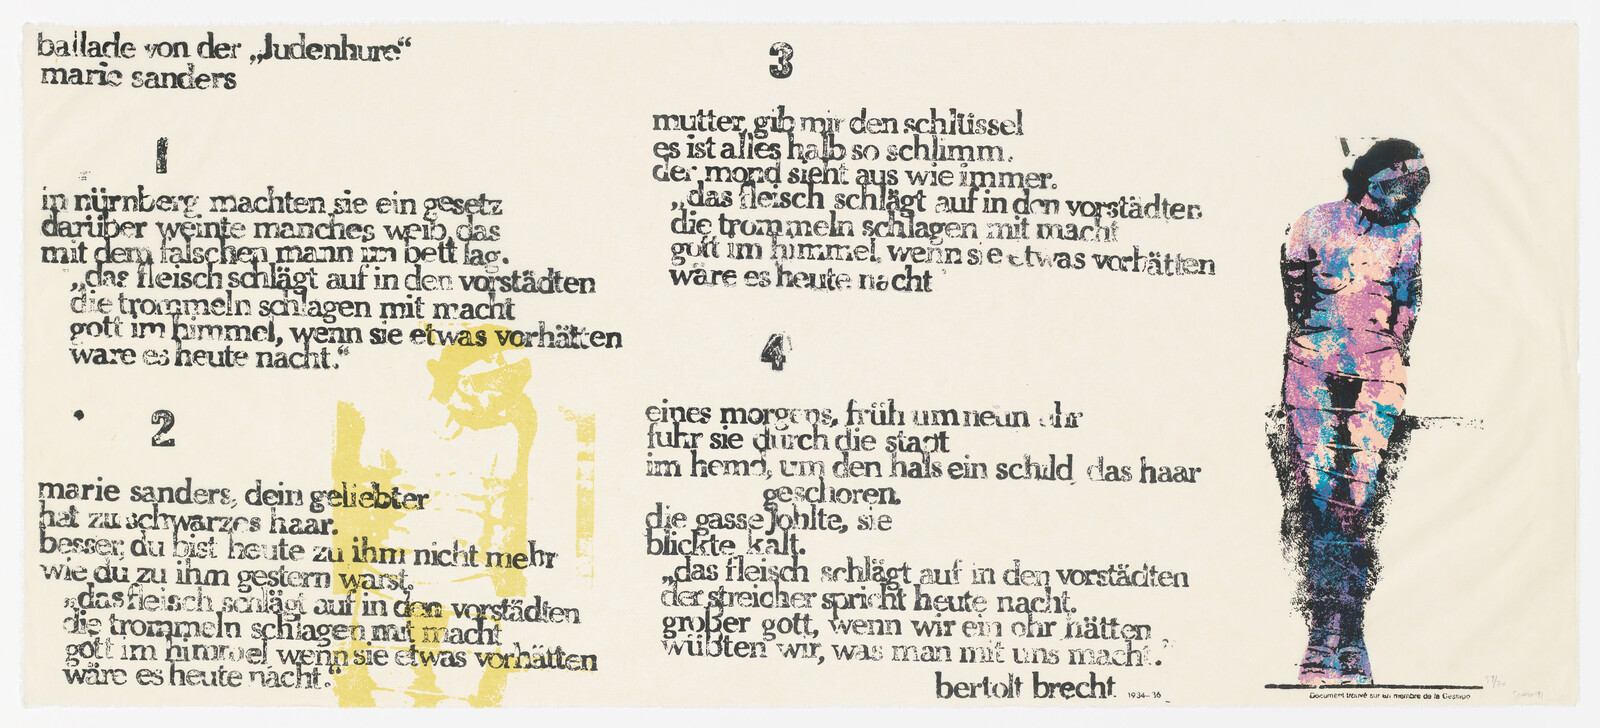 ballade von der „Judenhure“
marie sanders
1
in nürnberg machten sie ein gesetz
darüber weinte manches weib, das
mit dem falschen mann im bett lag.
„das fleisch schlägt auf in den vorstädten
die trommeln schlagen mit macht
gott im himmel, wenn sie etwas vorhätten
wäre es heute nacht.“
2
marie sanders, dein geliebter
hat zu schwarzes haar.
besser, du bist heute zu ihm nicht mehr
wie du zu ihm gestern warst.
„das fleisch schlägt auf in den vorstädten
die trommeln schlagen mit macht
gott im himmel wenn sie etwas vorhätten
wäre es heute nacht.“
3
mutter, gib mir den schlüssel
es ist alles halb so schlimm.
der mond sieht aus wie immer.
„das fleisch schlägt auf in den vorstädten
die trommeln schlagen mit macht
gott im himmel, wenn sie etwas vorhätten
wäre es heute nacht
4
eines morgens, früh um neun uhr
fuhr sie durch die stadt
im hemd, um den hals ein schild, das haar
geschoren.
die gasse johlte, sie
blickte kalt.
„das fleisch schlägt auf in den vorstädten
der streicher spricht heute nacht.
großer gott, wenn wir ein ohr hätten
wüßten wir, was man mit uns macht.“
bertolt brecht 1934–36
Document trouvé sur un membre de la Gestapo